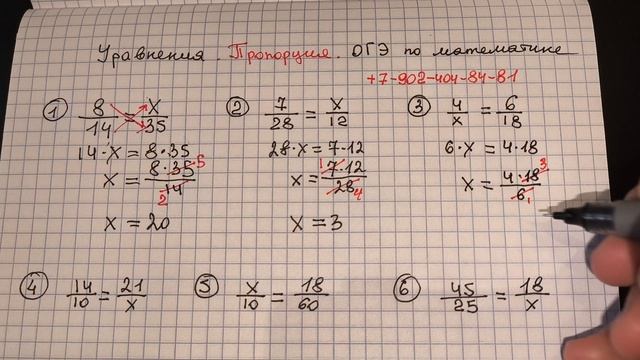 Уравнения. Пропорция. ОГЭ по математике
+7-902-404-84-81
① 8/14 = x/35
14·x = 8·35
x = 8·35/14 5 2
x = 20
② 7/28 = x/12
28·x = 7·12
x = 7·12/28 1 4
x = 3
③ 4/x = 6/18
6·x = 4·18
x = 4·18/6 3 1
④ 14/10 = 21/x
⑤ x/10 = 18/60
⑥ 45/25 = 18/x